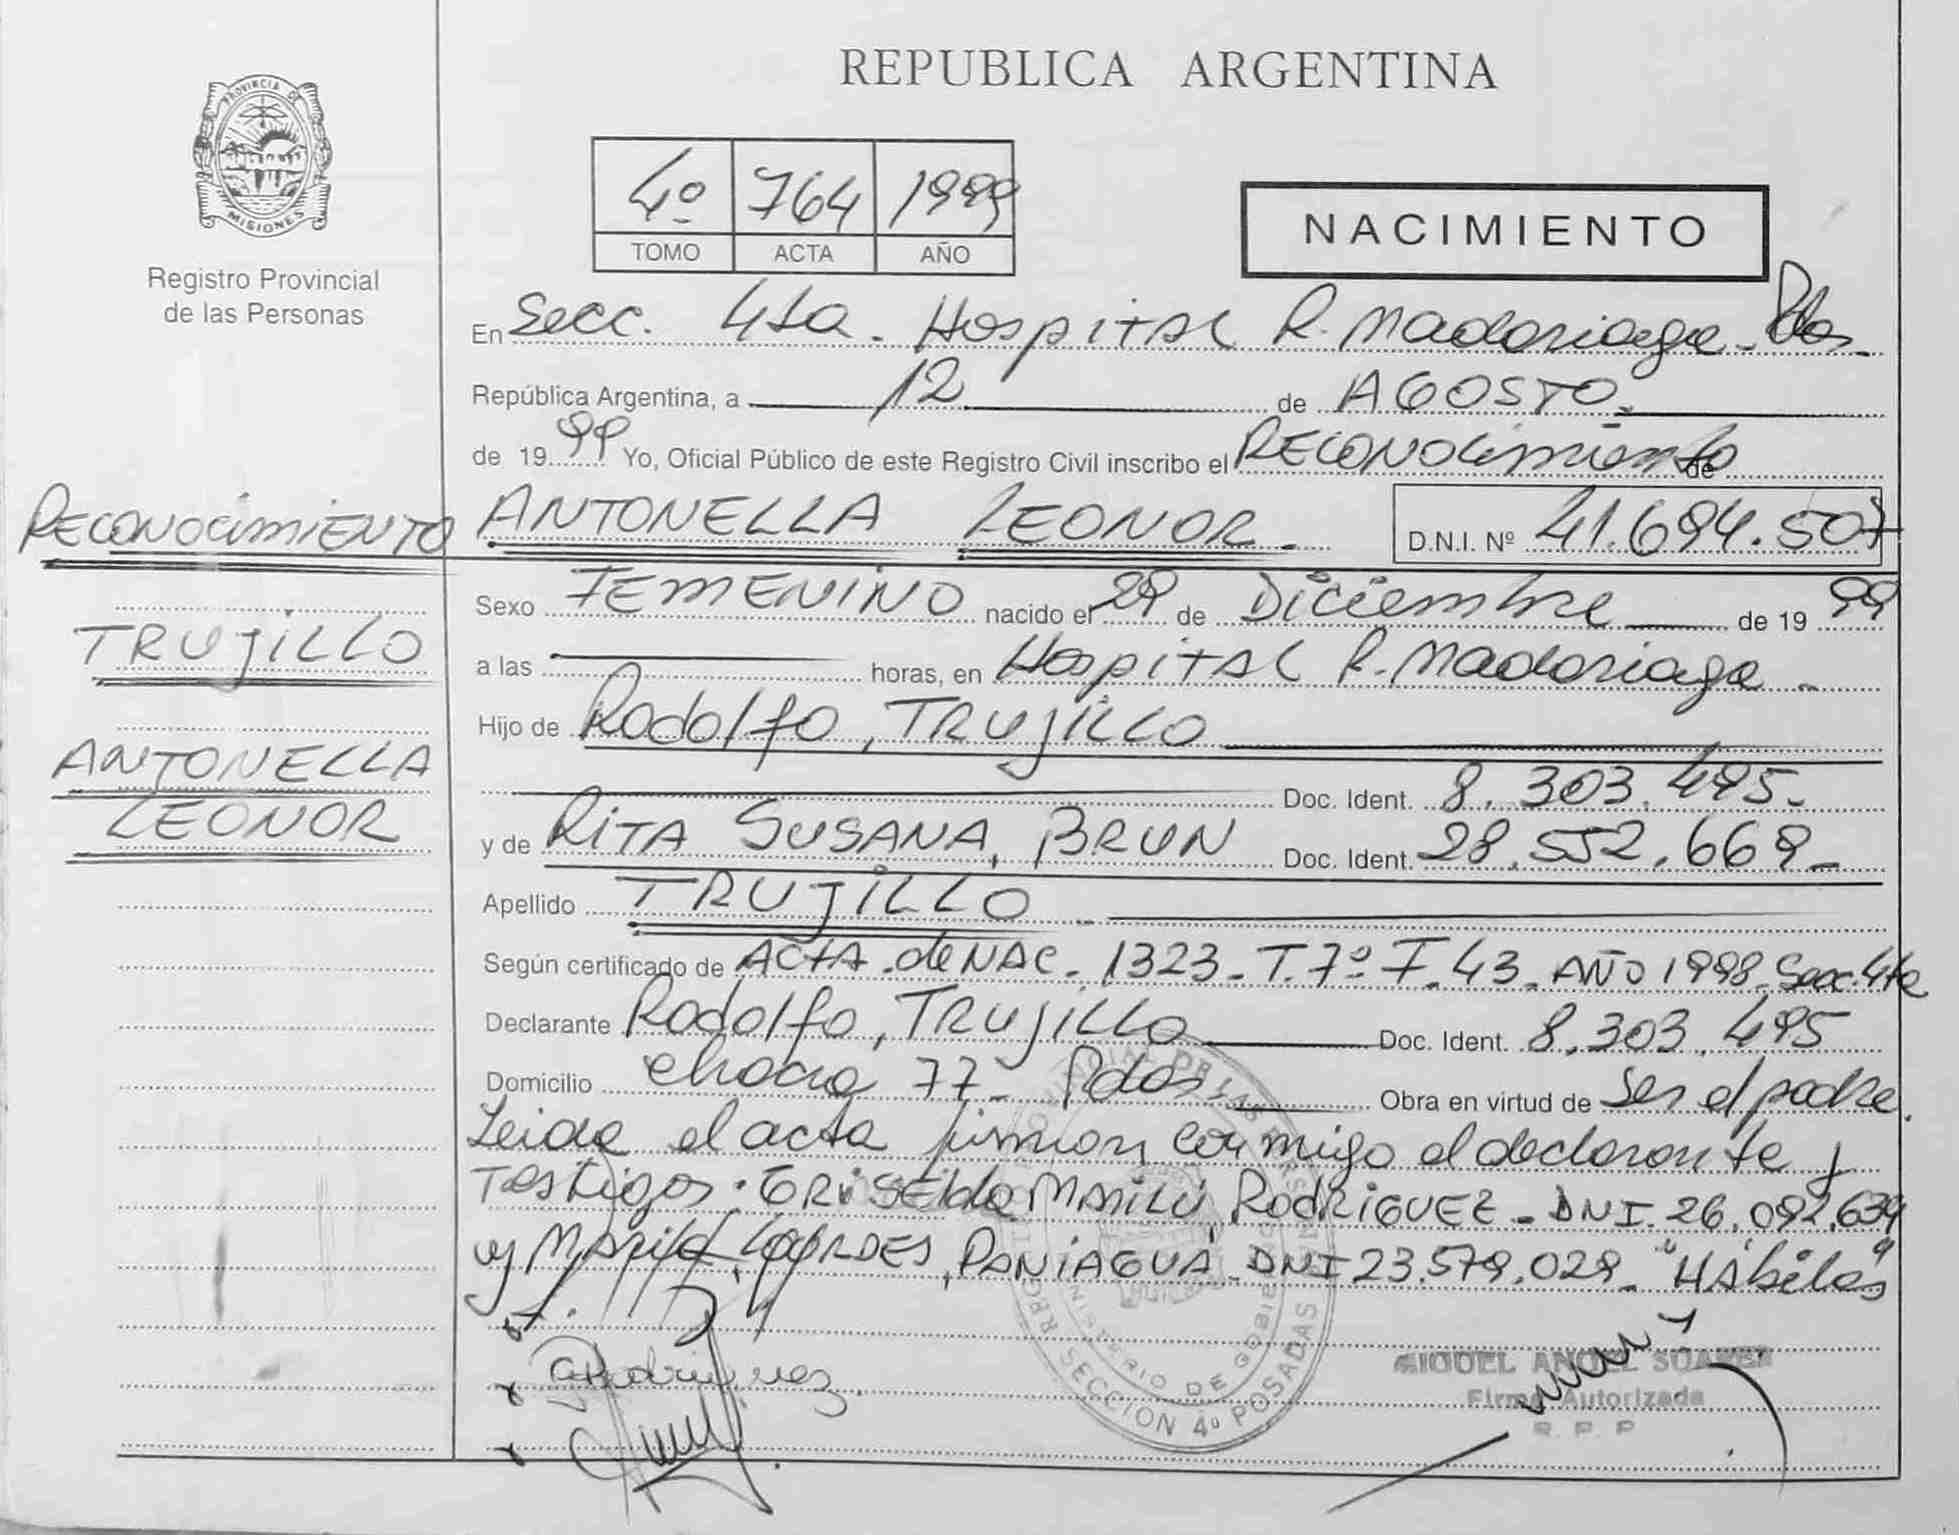 REPUBLICA ARGENTINA
PROVINCIA DE
MISIONES
Registro Provincial
de las Personas
4º 764 1999
TOMO ACTA AÑO
NACIMIENTO
En Secc. 4ta. Hospital R. Madariaga - Pdas.
República Argentina, a 12 de AGOSTO.
de 1999 Yo, Oficial Público de este Registro Civil inscribo el RECONOCIMIENTO de
RECONOCIMIENTO
ANTONELLA LEONOR. D.N.I. Nº 41.694.507
Sexo FEMENINO nacido el 29 de Diciembre de 1999
TRUJILLO
a las horas, en Hospital R. Madariaga
Hijo de Rodolfo, TRUJILLO
ANTONELLA
LEONOR
Doc. Ident. 8.303.495.
y de RITA SUSANA, BRUN Doc. Ident. 28.552.669
Apellido TRUJILLO
Según certificado de ACTA de NAC. 1323 - T. 7º F. 43 - AÑO 1998 - Secc. 4ta
Declarante Rodolfo, TRUJILLO Doc. Ident. 8.303.495
Domicilio chacra 77 - Pdas. Obra en virtud de ser el padre.
Leida el acta firman conmigo el declarante y
Testigos: GRISELDA MARILÚ, RODRIGUEZ - DNI. 26.092.634
y LOURDES, PANIAGUA - DNI 23.579.029 - "Hábiles"
MIGUEL ANGEL SUAREZ
Firma Autorizada
R. P. P
MINISTERIO DE GOBIERNO
SECCION 4ª POSADAS